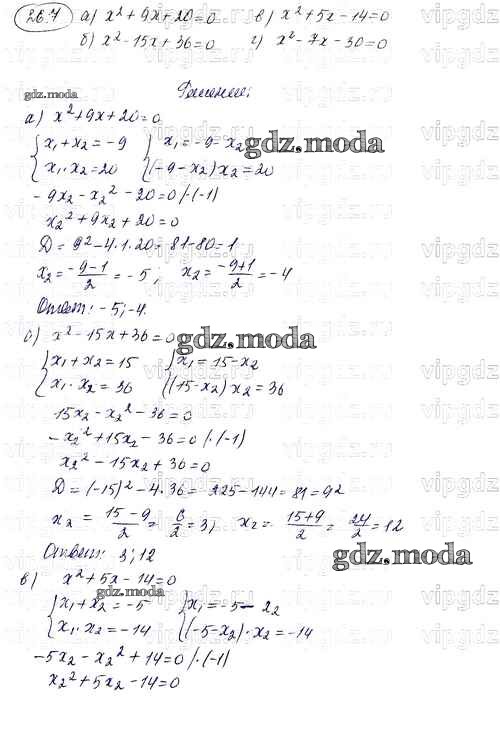 26.7 а) x²+9x+20=0 в) x²+5x-14=0
б) x²-15x+36=0 г) x²-7x-30=0
gdz.moda
Решение:
а) x²+9x+20=0
{x₁+x₂=-9 {x₁=-9-x₂
gdz.moda
{x₁·x₂=20 {(-9-x₂)x₂=20
-9x₂-x₂²-20=0 /·(-1)
x₂²+9x₂+20=0
D=9²-4·1·20=81-80=1
x₂=(-9-1)/2=-5; x₂=(-9+1)/2=-4
Ответ: -5;-4.
б) x²-15x+36=0
gdz.moda
{x₁+x₂=15 {x₁=15-x₂
{x₁·x₂=36 {(15-x₂)x₂=36
15x₂-x₂²-36=0
-x₂²+15x₂-36=0 /·(-1)
x₂²-15x₂+36=0
D=(-15)²-4·36=225-144=81=9²
x₂=(15-9)/2=6/2=3; x₂=(15+9)/2=24/2=12
Ответ: 3;12
gdz.moda
в) x²+5x-14=0
gdz.moda
{x₁+x₂=-5 {x₁=-5-x₂
{x₁·x₂=-14 {(-5-x₂)·x₂=-14
-5x₂-x₂²+14=0 /·(-1)
x₂²+5x₂-14=0